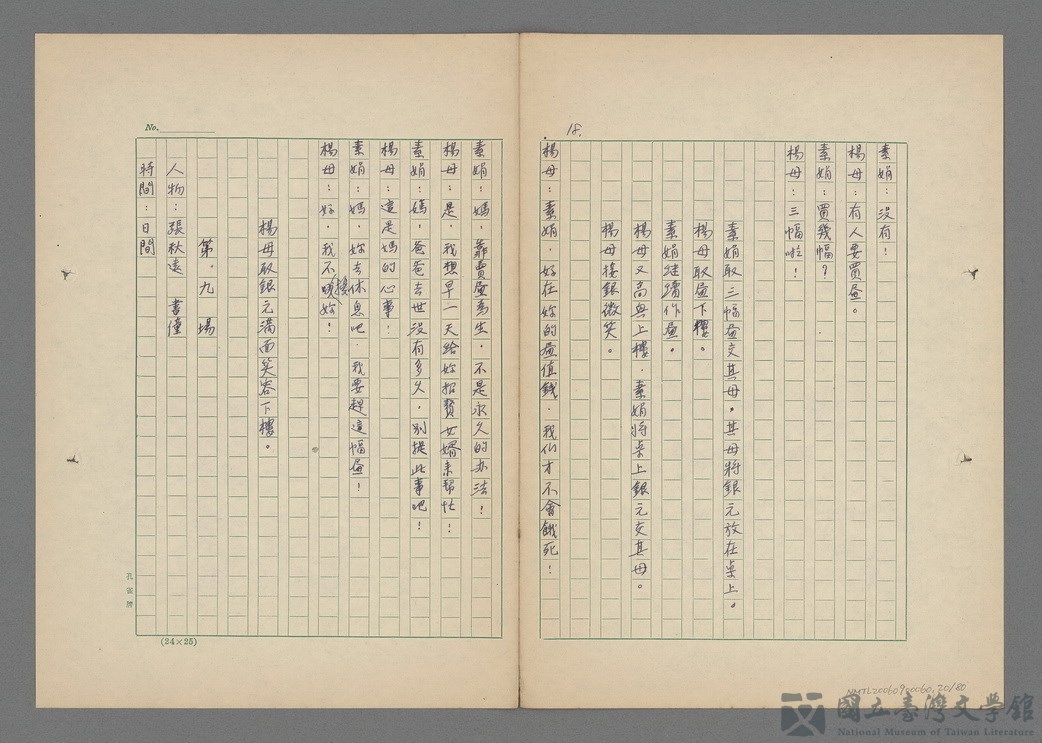 18.
素娟：沒有！
楊母：有人要買畫。
素娟：買幾幅？
楊母：三幅啦！
素娟取三幅畫交其母，其母將銀元放在桌上。
楊母取畫下樓。
素娟继續作畫。
楊母又高興上樓，素娟將桌上銀元交其母。
楊母接銀微笑。
楊母：素娟，好在妳的畫值錢，我们才不會餓死！
No.
素娟：媽，靠賣畫為生，不是永久的办法！
楊母：是，我想早一天給妳招贅女婿来幫忙！
素娟：媽，爸爸去世沒有多久，別提此事吧！
楊母：這是媽的心事！
素娟：媽，妳去休息吧，我要趕這幅畫！
楊母：好，我不擾妳！
楊母取銀元滿面笑容下樓。
第．九場
人物：張秋遠 書僮
時間：日間
孔雀牌
(24×25)
NMTL20060900060,20/80
國立臺灣文學館
National Museum of Taiwan Literature